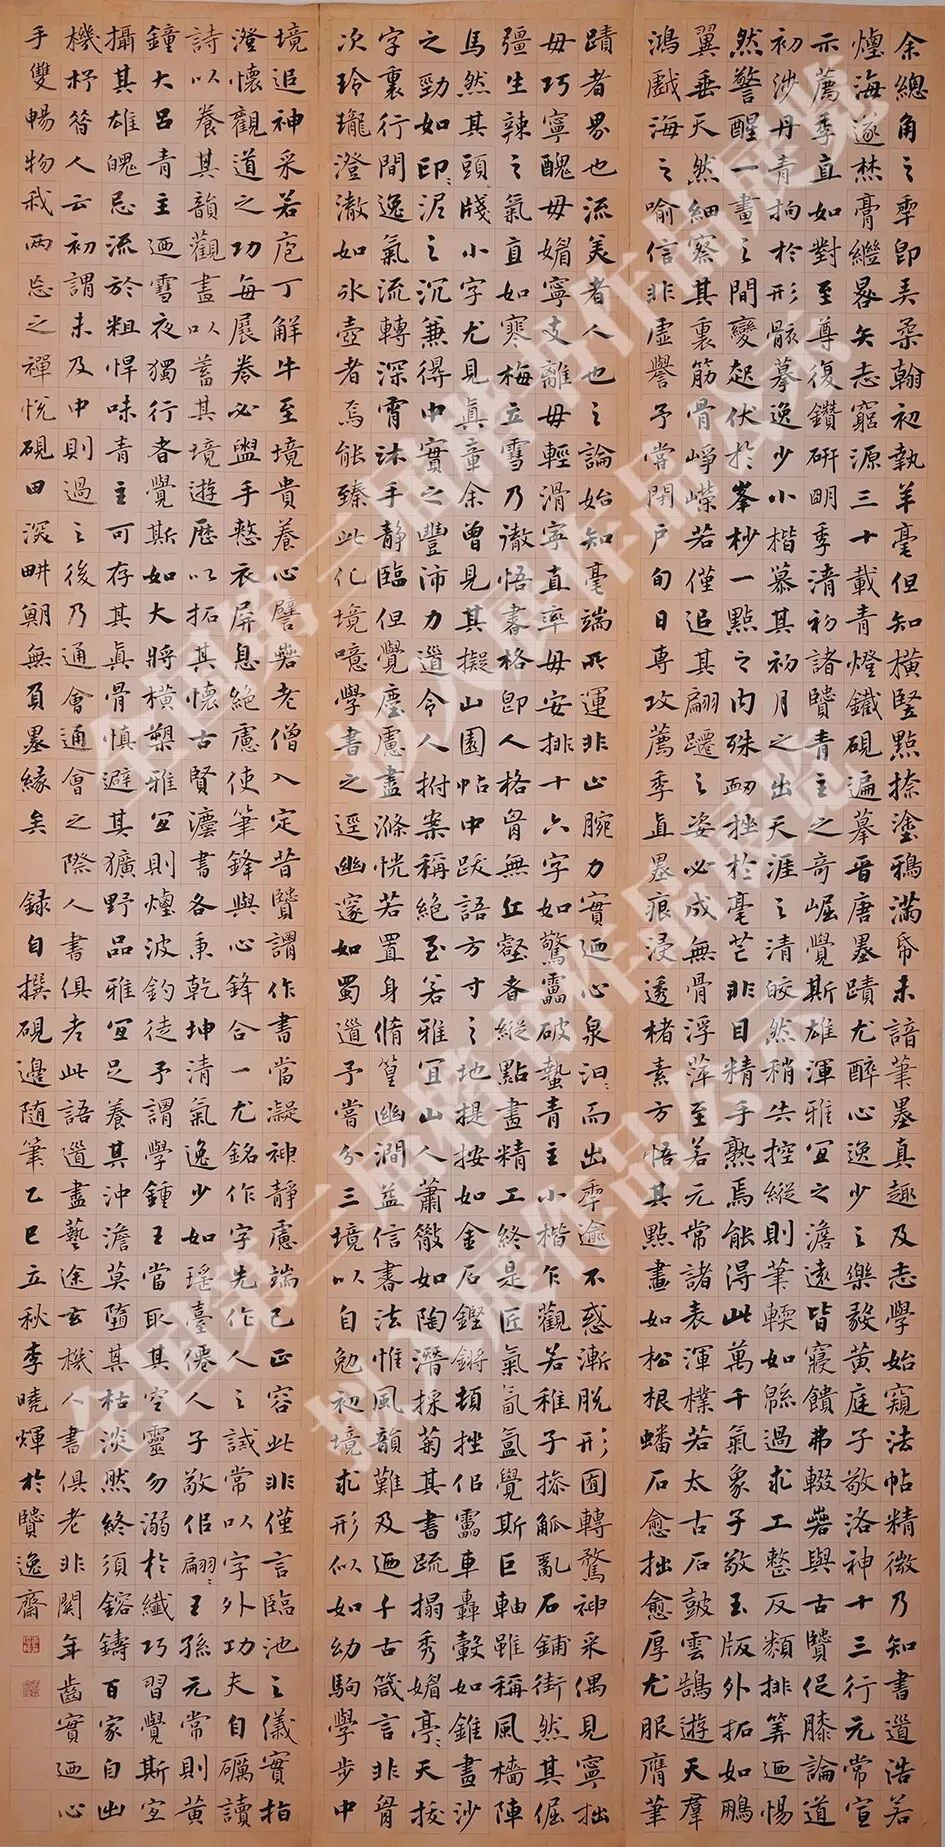 余總角之季即弄柔翰初執羊毫但知橫竪點捺塗鴉滿帋未諳筆墨真趣及志學始窺法帖精微乃知書道浩若
煙海遂焚膏繼晷矢志窮源三十載青燈鐵硯遍摹晉唐墨蹟尤醉心逸少之樂毅黃庭子敬洛神十三行元常宣
示薦季直如對至尊復鑽研明季清初諸賢青主之奇崛覺斯雄渾雅宜之澹遠皆寢饋弗輟甞與古賢促膝論道
初涉丹青拘於形骸摹逸少小楷慕其初月之出天涯之清皎然稍失控縱則筆輭如緜過求工整反類排筭迺惕
然警醒一畫之間變起伏於峯杪一點之內殊衂挫於毫芒非目精手熟焉能得此萬千氣象子敬玉版外拓如鵬
翼垂天然細察其裏筋骨崢嶸若僅追其翩躚之姿必成無骨浮萍至若元常諸表渾樸若太古石鼓雲鵠遊天羣
鴻戲海之喻信非虛譽予嘗閉戶旬日專攻薦季直墨痕浸透楮素方悟其點畫如松根蟠石愈拙愈厚尤服膺筆
蹟者界也流美者人也之論始知毫端所運非止腕力實迺心泉汩汩而出季逾不惑漸脫形囿轉騖神采偶見寧拙
毋巧寧醜毋媚寧支離毋輕滑寧直率毋安排十六字如驚靁破蟄青主小楷乍觀若稚子捺觚亂石鋪街然其倔
彊生辣之氣直如寒梅立雪乃澈悟書格即人格骨無丘壑者縱點畫精工終是匠氣氤氳覺斯巨軸雖稱風檣陣
馬然其頭牋小字尤見真章余曾見其擬山園帖中跋語方寸之地提按如金石鏗鏘頓挫佀靁車轟轂如錐畫沙
之勁如印印泥之沉兼得中實之豐沛力遒令人拊案稱絕至若雅宜山人蕭散如陶潛採菊其書疏搨秀媚亭亭天挍
字裏行間逸氣流轉深宵沐手靜臨但覺塵慮盡滌恍若置身脩篁幽澗益信書法惟風韻難及迺千古箴言非骨
次玲瓏澄澈如冰壺者焉能臻此化境噫學書之逕幽邃如蜀道予嘗分三境以自勉初境求形似如幼駒學步中
境追神采若庖丁解牛至境貴養心譬若老僧入定昔賢謂作書當凝神靜慮端己正容此非僅言臨池之儀實指
澄懷觀道之功每展卷必盥手整衣屏息絕慮使筆鋒與心鋒合一尤銘作字先作人之誡常以字外功夫自礪讀
詩以養其韻觀畫以蓄其境遊歷以拓其懷古賢灋書各秉乾坤清氣逸少如瑤臺僊人子敬佀翩翩王孫元常則黃
鐘大呂青主迺雪夜獨行者覺斯如大將橫槊雅宜則煙波釣徒予謂學鍾王當取其空靈勿溺於纖巧習覺斯宜
攝其雄魄忌流於粗悍味青主可存其真骨慎避其獷野品雅宜足養其沖澹莫墮其枯淡然終須鎔鑄百家自出
機杼昝人云初謂未及中則過之後乃通會通會之際人書俱老此語道盡藝途玄機人書俱老非關年齒實迺心
手雙暢物我兩忘之禪悅硯田深畊朝無負墨緣矣 錄自撰硯邊随筆乙巳立秋李曉輝於賢逸齋
全国第三届楷书作品展览
拟入展作品公示